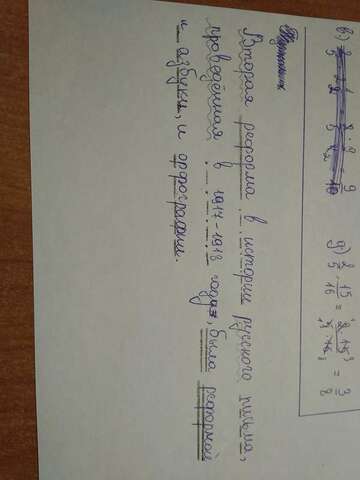 в)
д) 2/5 · 15/16 = 2 · 15 / 5 · 16 = 3/8
Вторая реформа в истории русского письма,
проведённая в 1917-1918 годах, была реформой
и азбуки, и орфографии.